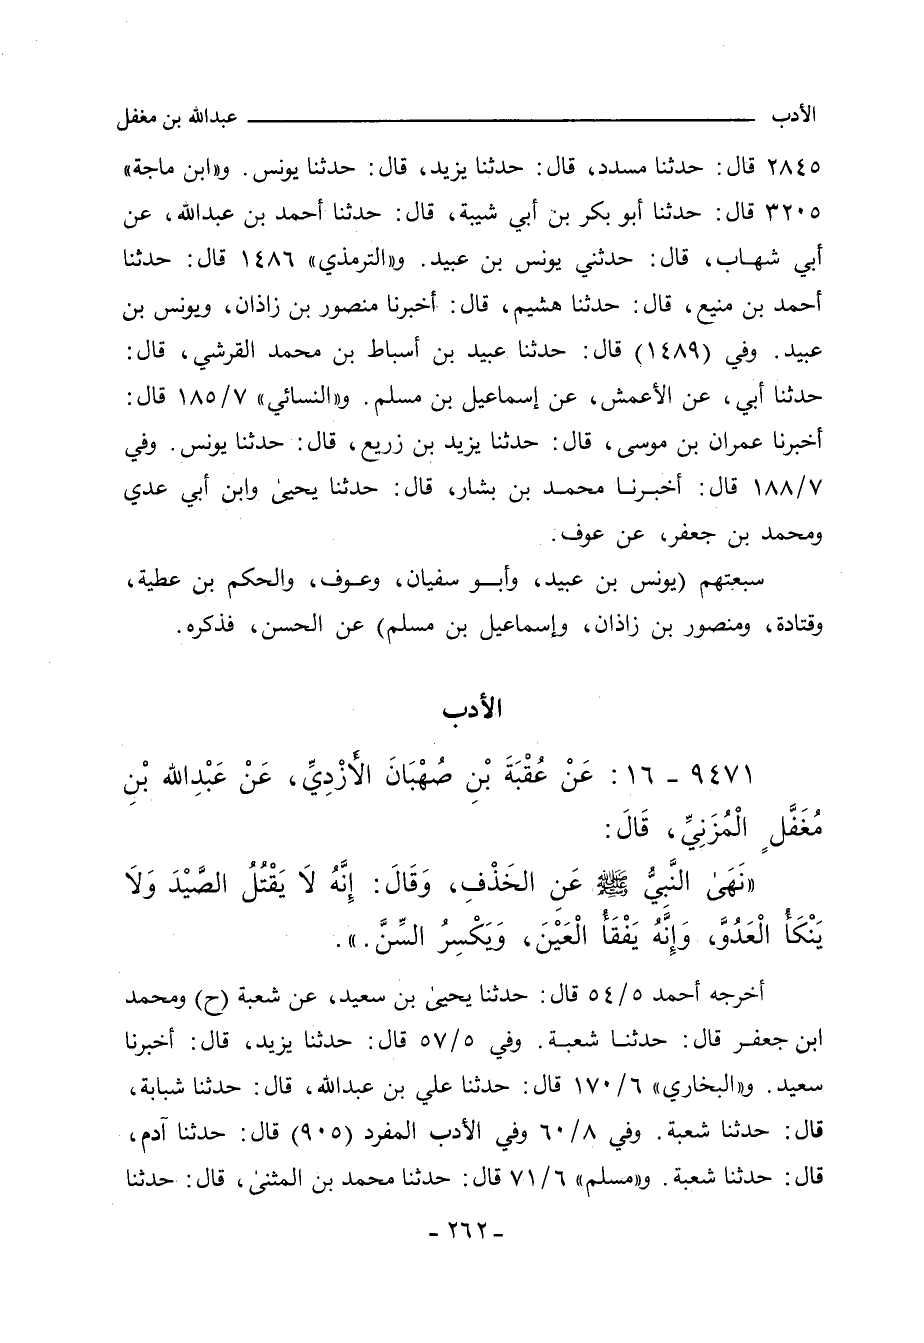 الأدب ـــــــــ عبدالله بن مغفل
٢٨٤٥ قال: حدثنا مسدد، قال: حدثنا يزيد، قال: حدثنا يونس. و«ابن ماجة»
٣٢٠٥ قال: حدثنا أبو بكر بن أبي شيبة، قال: حدثنا أحمد بن عبدالله، عن
أبي شهاب، قال: حدثني يونس بن عبيد. و«الترمذي» ١٤٨٦ قال: حدثنا
أحمد بن منيع، قال: حدثنا هشيم، قال: أخبرنا منصور بن زاذان، ويونس بن
عبيد. وفي (١٤٨٩) قال: حدثنا عبيد بن أسباط بن محمد القرشي، قال:
حدثنا أبي، عن الأعمش، عن إسماعيل بن مسلم. و«النسائي» ١٨٥/٧ قال:
أخبرنا عمران بن موسى، قال: حدثنا يزيد بن زريع، قال: حدثنا يونس. وفي
١٨٨/٧ قال: أخبرنا محمد بن بشار، قال: حدثنا يحيىٰ وابن أبي عدي
ومحمد بن جعفر، عن عوف.
سبعتهم (يونس بن عبيد، وأبو سفيان، وعوف، والحكم بن عطية،
وقتادة، ومنصور بن زاذان، وإسماعيل بن مسلم) عن الحسن، فذكره.
الأدب
٩٤٧١ - ١٦: عَنْ عُقْبَةَ بْنِ صُهْبَانَ الأَزْدِيِّ، عَنْ عَبْدِالله بْنِ
مُغَفَّلٍ الْمُزَنِيِّ، قَالَ:
«نَهَىٰ النَّبِيُّ ﷺ عَنِ الخَذْفِ، وَقَالَ: إِنَّهُ لَا يَقْتُلُ الصَّيْدَ وَلَا
يَنْكَأُ الْعَدُوَّ، وَإِنَّهُ يَفْقَأُ الْعَيْنَ، وَيَكْسِرُ السِّنَّ.».
أخرجه أحمد ٥٤/٥ قال: حدثنا يحيىٰ بن سعيد، عن شعبة (ح) ومحمد
ابن جعفر قال: حدثنا شعبة. وفي ٥٧/٥ قال: حدثنا يزيد، قال: أخبرنا
سعيد. و«البخاري» ١٧٠/٦ قال: حدثنا علي بن عبدالله، قال: حدثنا شبابة،
قال: حدثنا شعبة. وفي ٦٠/٨ وفي الأدب المفرد (٩٠٥) قال: حدثنا آدم،
قال: حدثنا شعبة. و«مسلم» ٧١/٦ قال: حدثنا محمد بن المثنىٰ، قال: حدثنا
- ٢٦٢ -